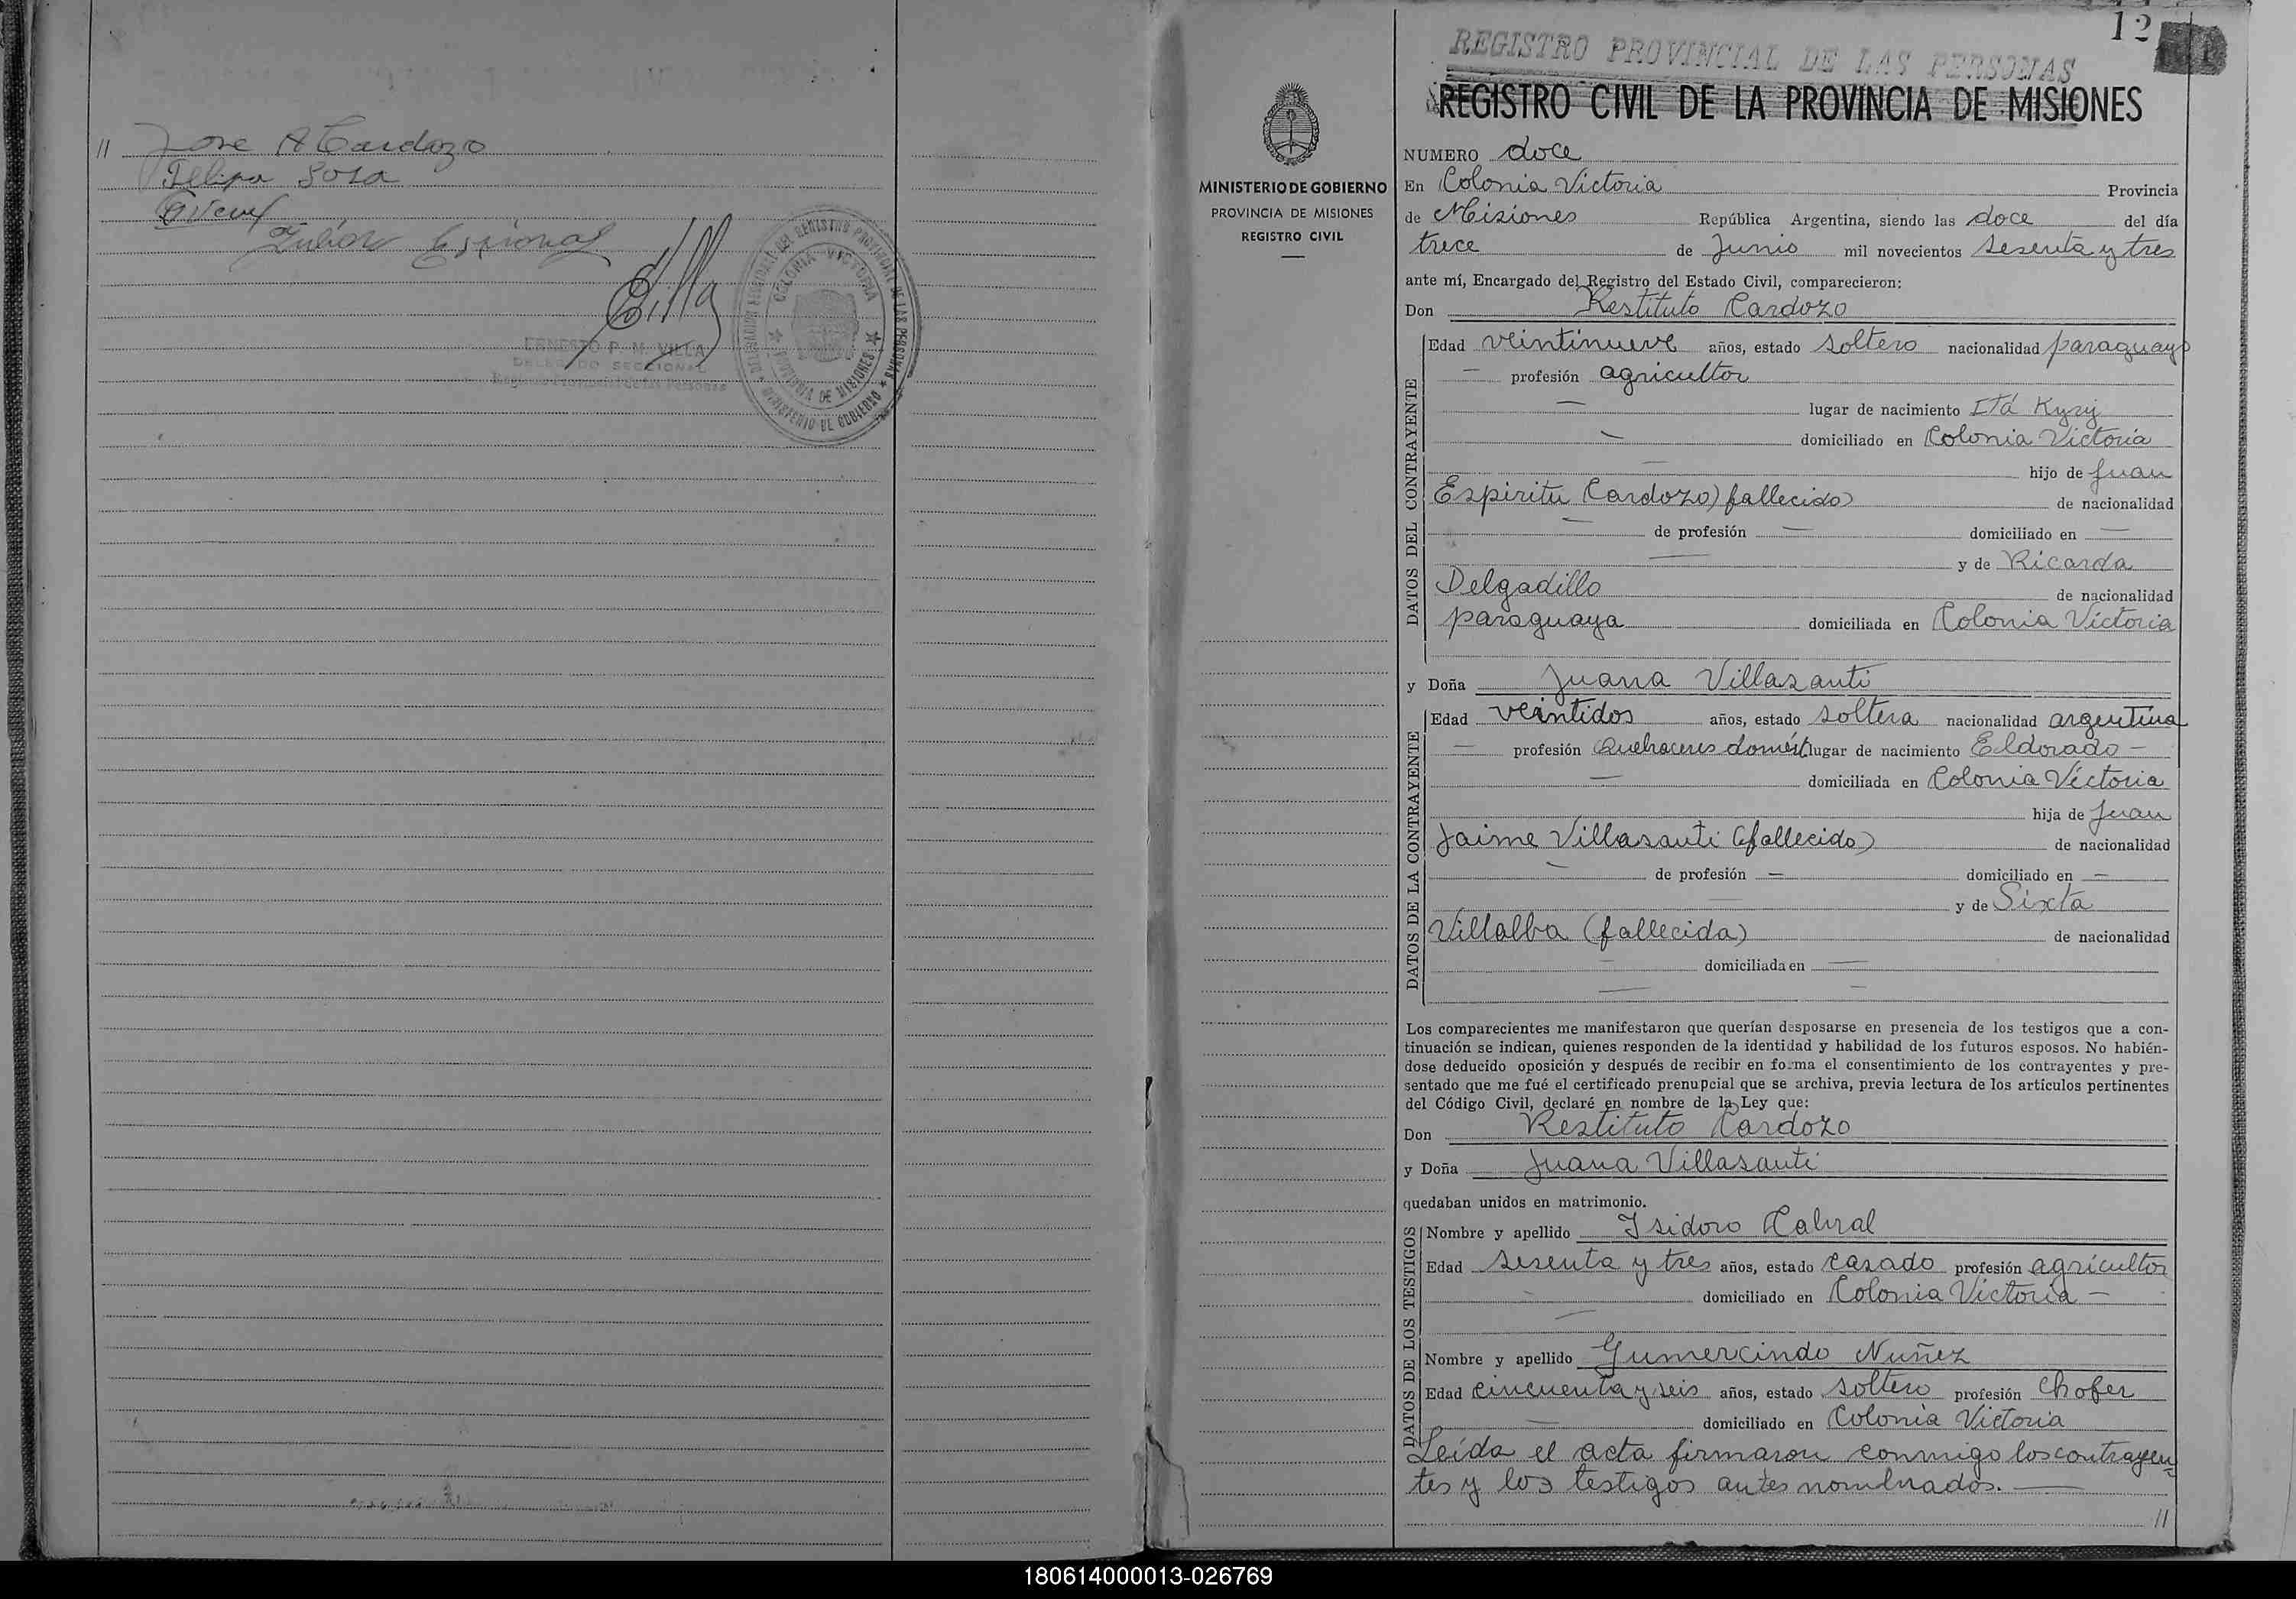 // Jose A Cardozo
Felipa Sosa
Julián Espinosa
Villa
ERNESTO P. M. VILLA
DELEGADO SECCIONAL
Registro Provincial de las Personas
COLONIA VICTORIA
PROVINCIA DE MISIONES
MINISTERIO DE GOBIERNO
12
REGISTRO PROVINCIAL DE LAS PERSONAS
REGISTRO CIVIL DE LA PROVINCIA DE MISIONES
MINISTERIO DE GOBIERNO
PROVINCIA DE MISIONES
REGISTRO CIVIL
NUMERO doce
En Colonia Victoria Provincia
de Misiones República Argentina, siendo las doce del día
trece de Junio mil novecientos sesenta y tres
ante mí, Encargado del Registro del Estado Civil, comparecieron:
Don Restituto Cardozo
DATOS DEL CONTRAYENTE
Edad veintinueve años, estado soltero nacionalidad paraguayo
— profesión agricultor
— lugar de nacimiento Itá Kyry
— domiciliado en Colonia Victoria
— hijo de Juan
Espiritu Cardozo) fallecido) de nacionalidad
— de profesión — domiciliado en —
— y de Ricarda
Delgadillo de nacionalidad
paraguaya domiciliada en Colonia Victoria
y Doña Juana Villasanti
DATOS DE LA CONTRAYENTE
Edad veintidos años, estado soltera nacionalidad argentina
— profesión Quehaceres domést lugar de nacimiento Eldorado —
— domiciliada en Colonia Victoria
hija de Juan
Jaime Villasanti (fallecido) de nacionalidad
— de profesión — domiciliado en —
— y de Sixta
Villalba (fallecida) de nacionalidad
— domiciliada en —
— —
Los comparecientes me manifestaron que querían desposarse en presencia de los testigos que a con-
tinuación se indican, quienes responden de la identidad y habilidad de los futuros esposos. No habién-
dose deducido oposición y después de recibir en forma el consentimiento de los contrayentes y pre-
sentado que me fué el certificado prenupcial que se archiva, previa lectura de los artículos pertinentes
del Código Civil, declaré en nombre de la Ley que:
Don Restituto Cardozo
y Doña Juana Villasanti
quedaban unidos en matrimonio.
DATOS DE LOS TESTIGOS
Nombre y apellido Isidoro Cabral
Edad sesenta y tres años, estado casado profesión agricultor
— domiciliado en Colonia Victoria —
—
Nombre y apellido Gumercindo Nuñez
Edad cincuenta y seis años, estado soltero profesión chofer
— domiciliado en Colonia Victoria
Leida el acta firmaron conmigo los contrayen-
tes y los testigos antes nombrados. —
//
180614000013-026769